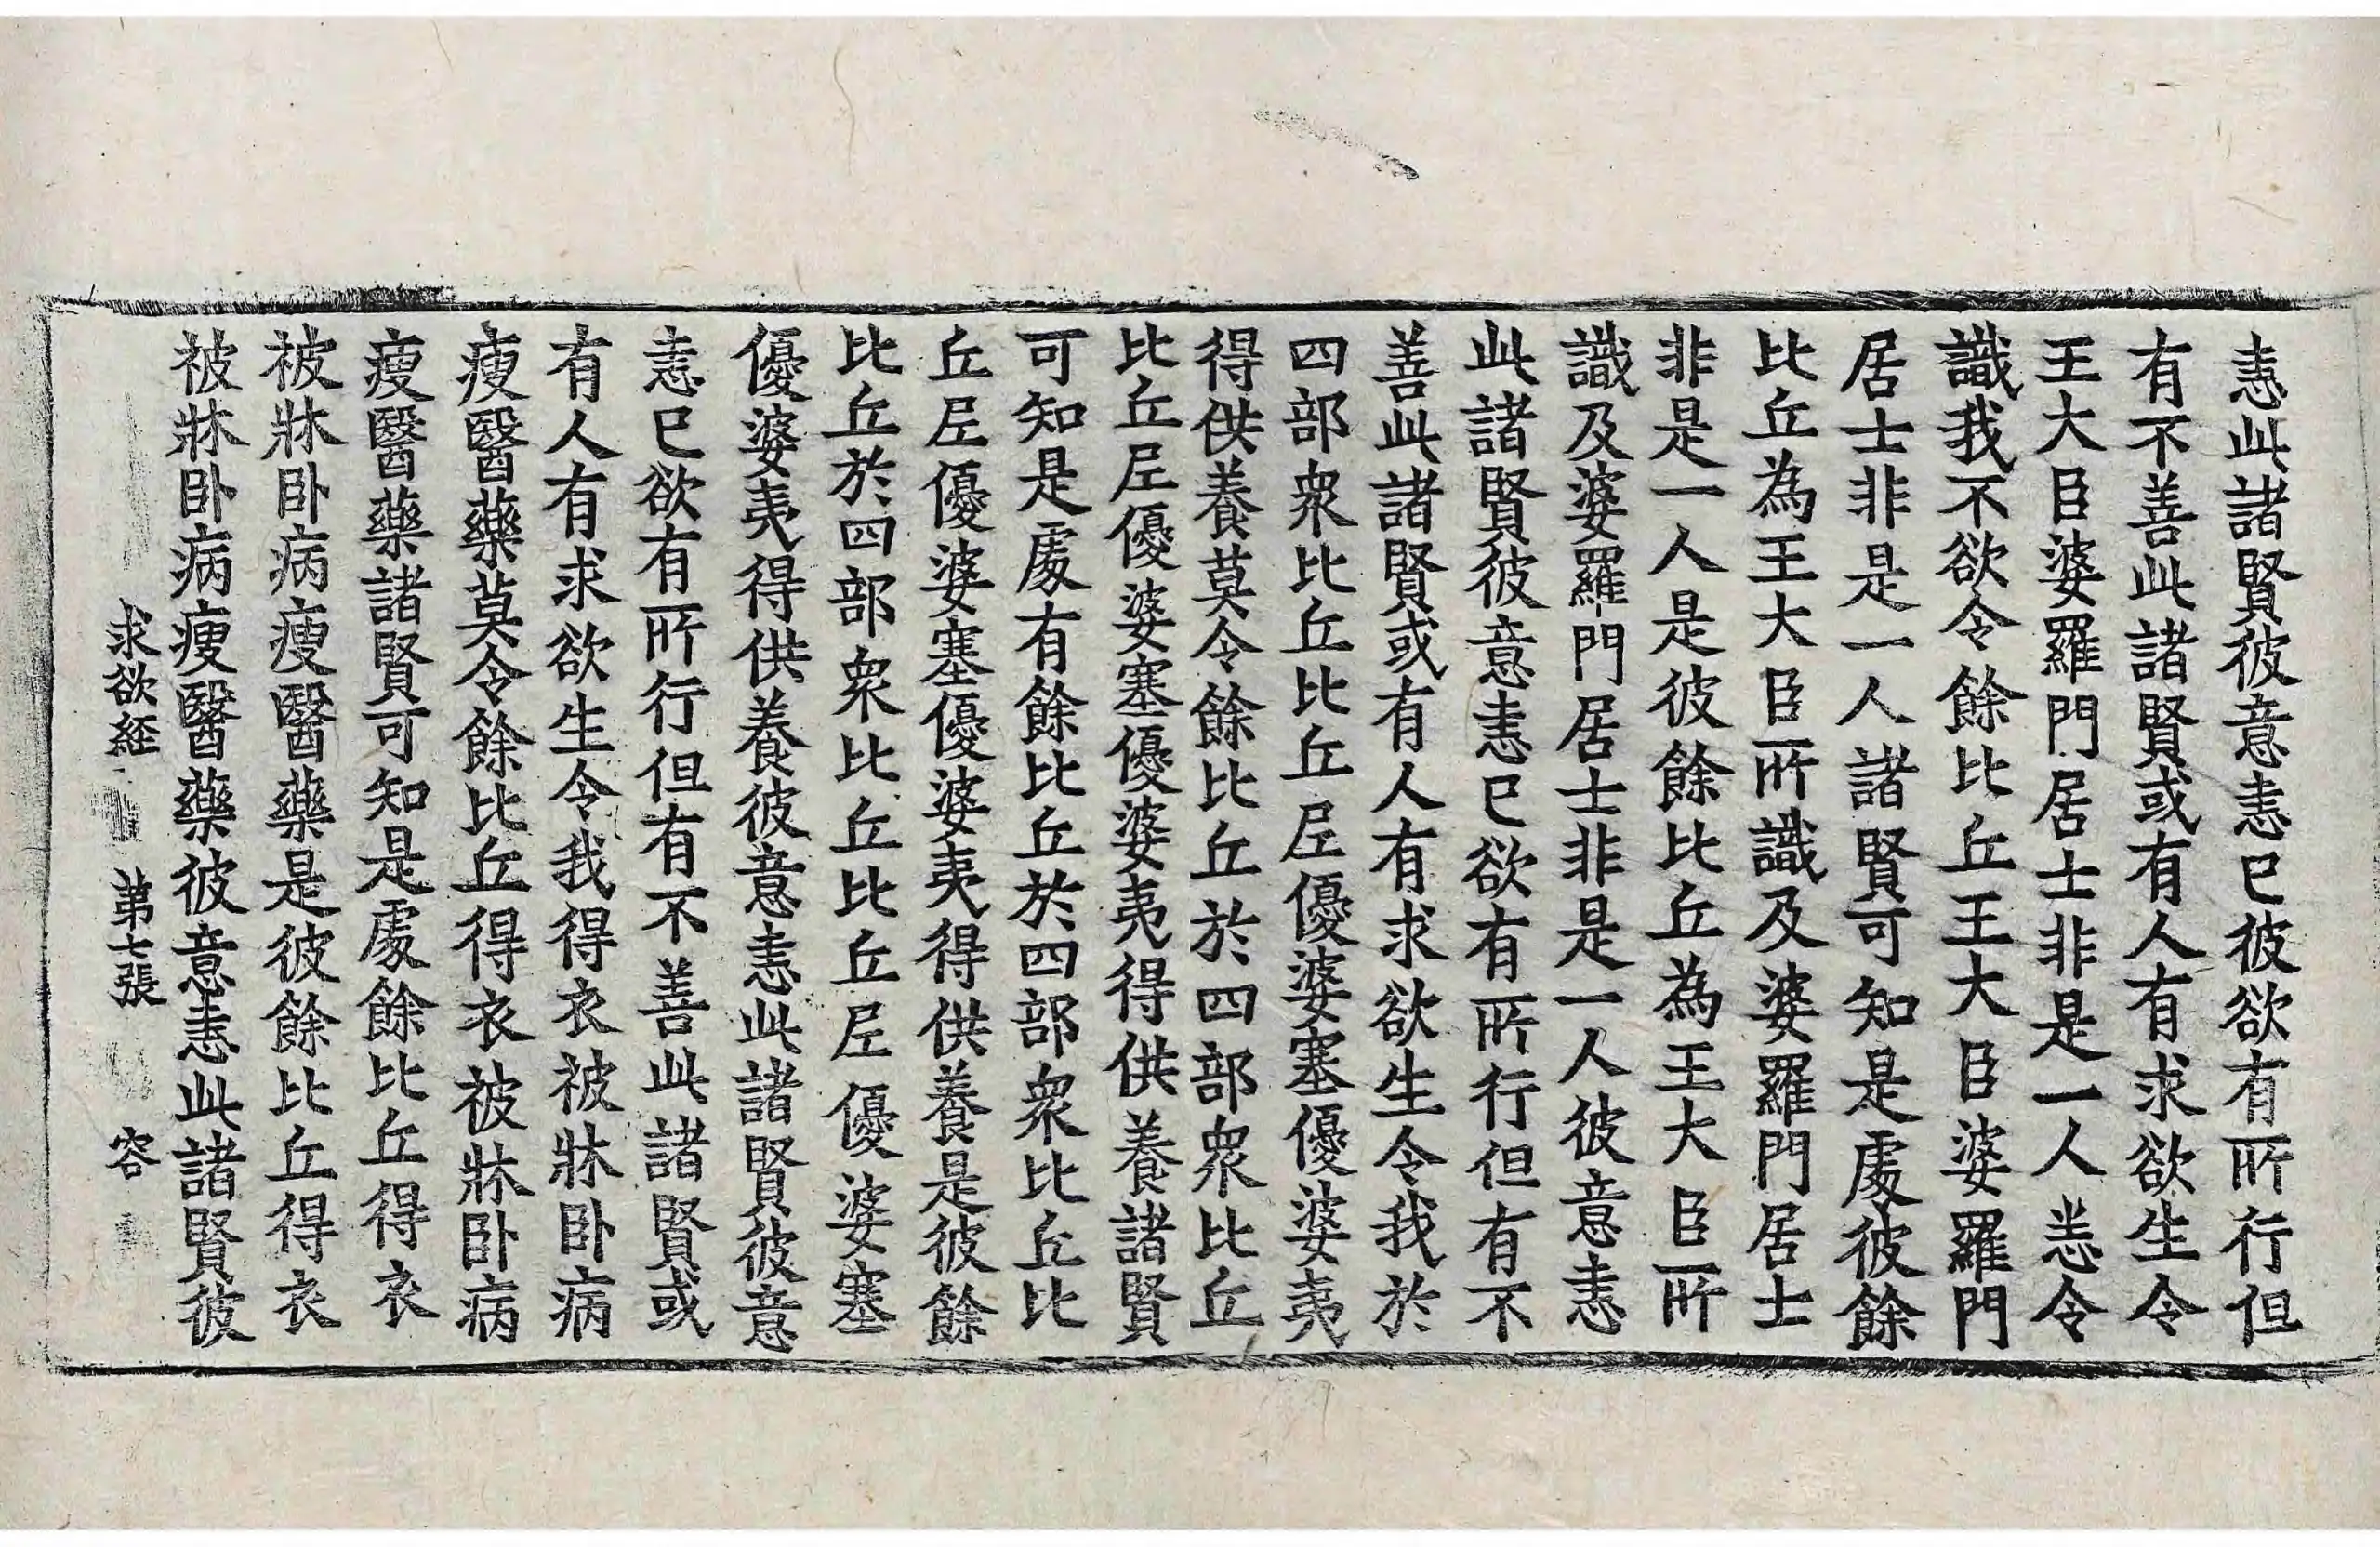 恚此諸賢彼意恚已彼欲有所行但
有不善此諸賢或有人有求欲生令
王大臣婆羅門居士非是一人恙令
識我不欲令餘比丘王大臣婆羅門
居士非是一人諸賢可知是處彼餘
比丘為王大臣所識及婆羅門居士
非是一人是彼餘比丘為王大臣所
識及婆羅門居士非是一人彼意恚
此諸賢彼意恚已欲有所行但有不
善此諸賢或有人有求欲生令我於
四部衆比丘比丘尼優婆塞優婆夷
得供養莫令餘比丘於四部衆比丘
比丘尼優婆塞優婆夷得供養諸賢
可知是處有餘比丘於四部衆比丘比
丘尼優婆塞優婆夷得供養是彼餘
比丘於四部衆比丘比丘尼優婆塞
優婆夷得供養彼意恚此諸賢彼意
恚已欲有所行但有不善此諸賢或
有人有求欲生令我得衣被牀卧病
瘦醫藥莫令餘比丘得衣被牀卧病
瘦醫藥諸賢可知是處餘比丘得衣
被牀卧病瘦醫藥是彼餘比丘得衣
被牀卧病瘦醫藥彼意恚此諸賢彼
求欲経 第七張 容